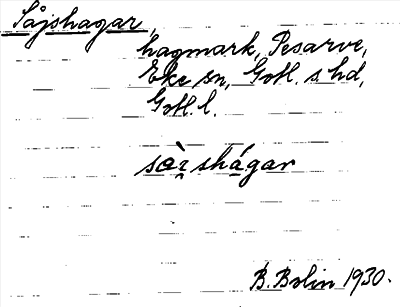 Såjshagar,
hagmark, Pesarve,
Eke sn, Gotl. s. hd,
Gotl. l.
shágar
B. Bolin 1930.